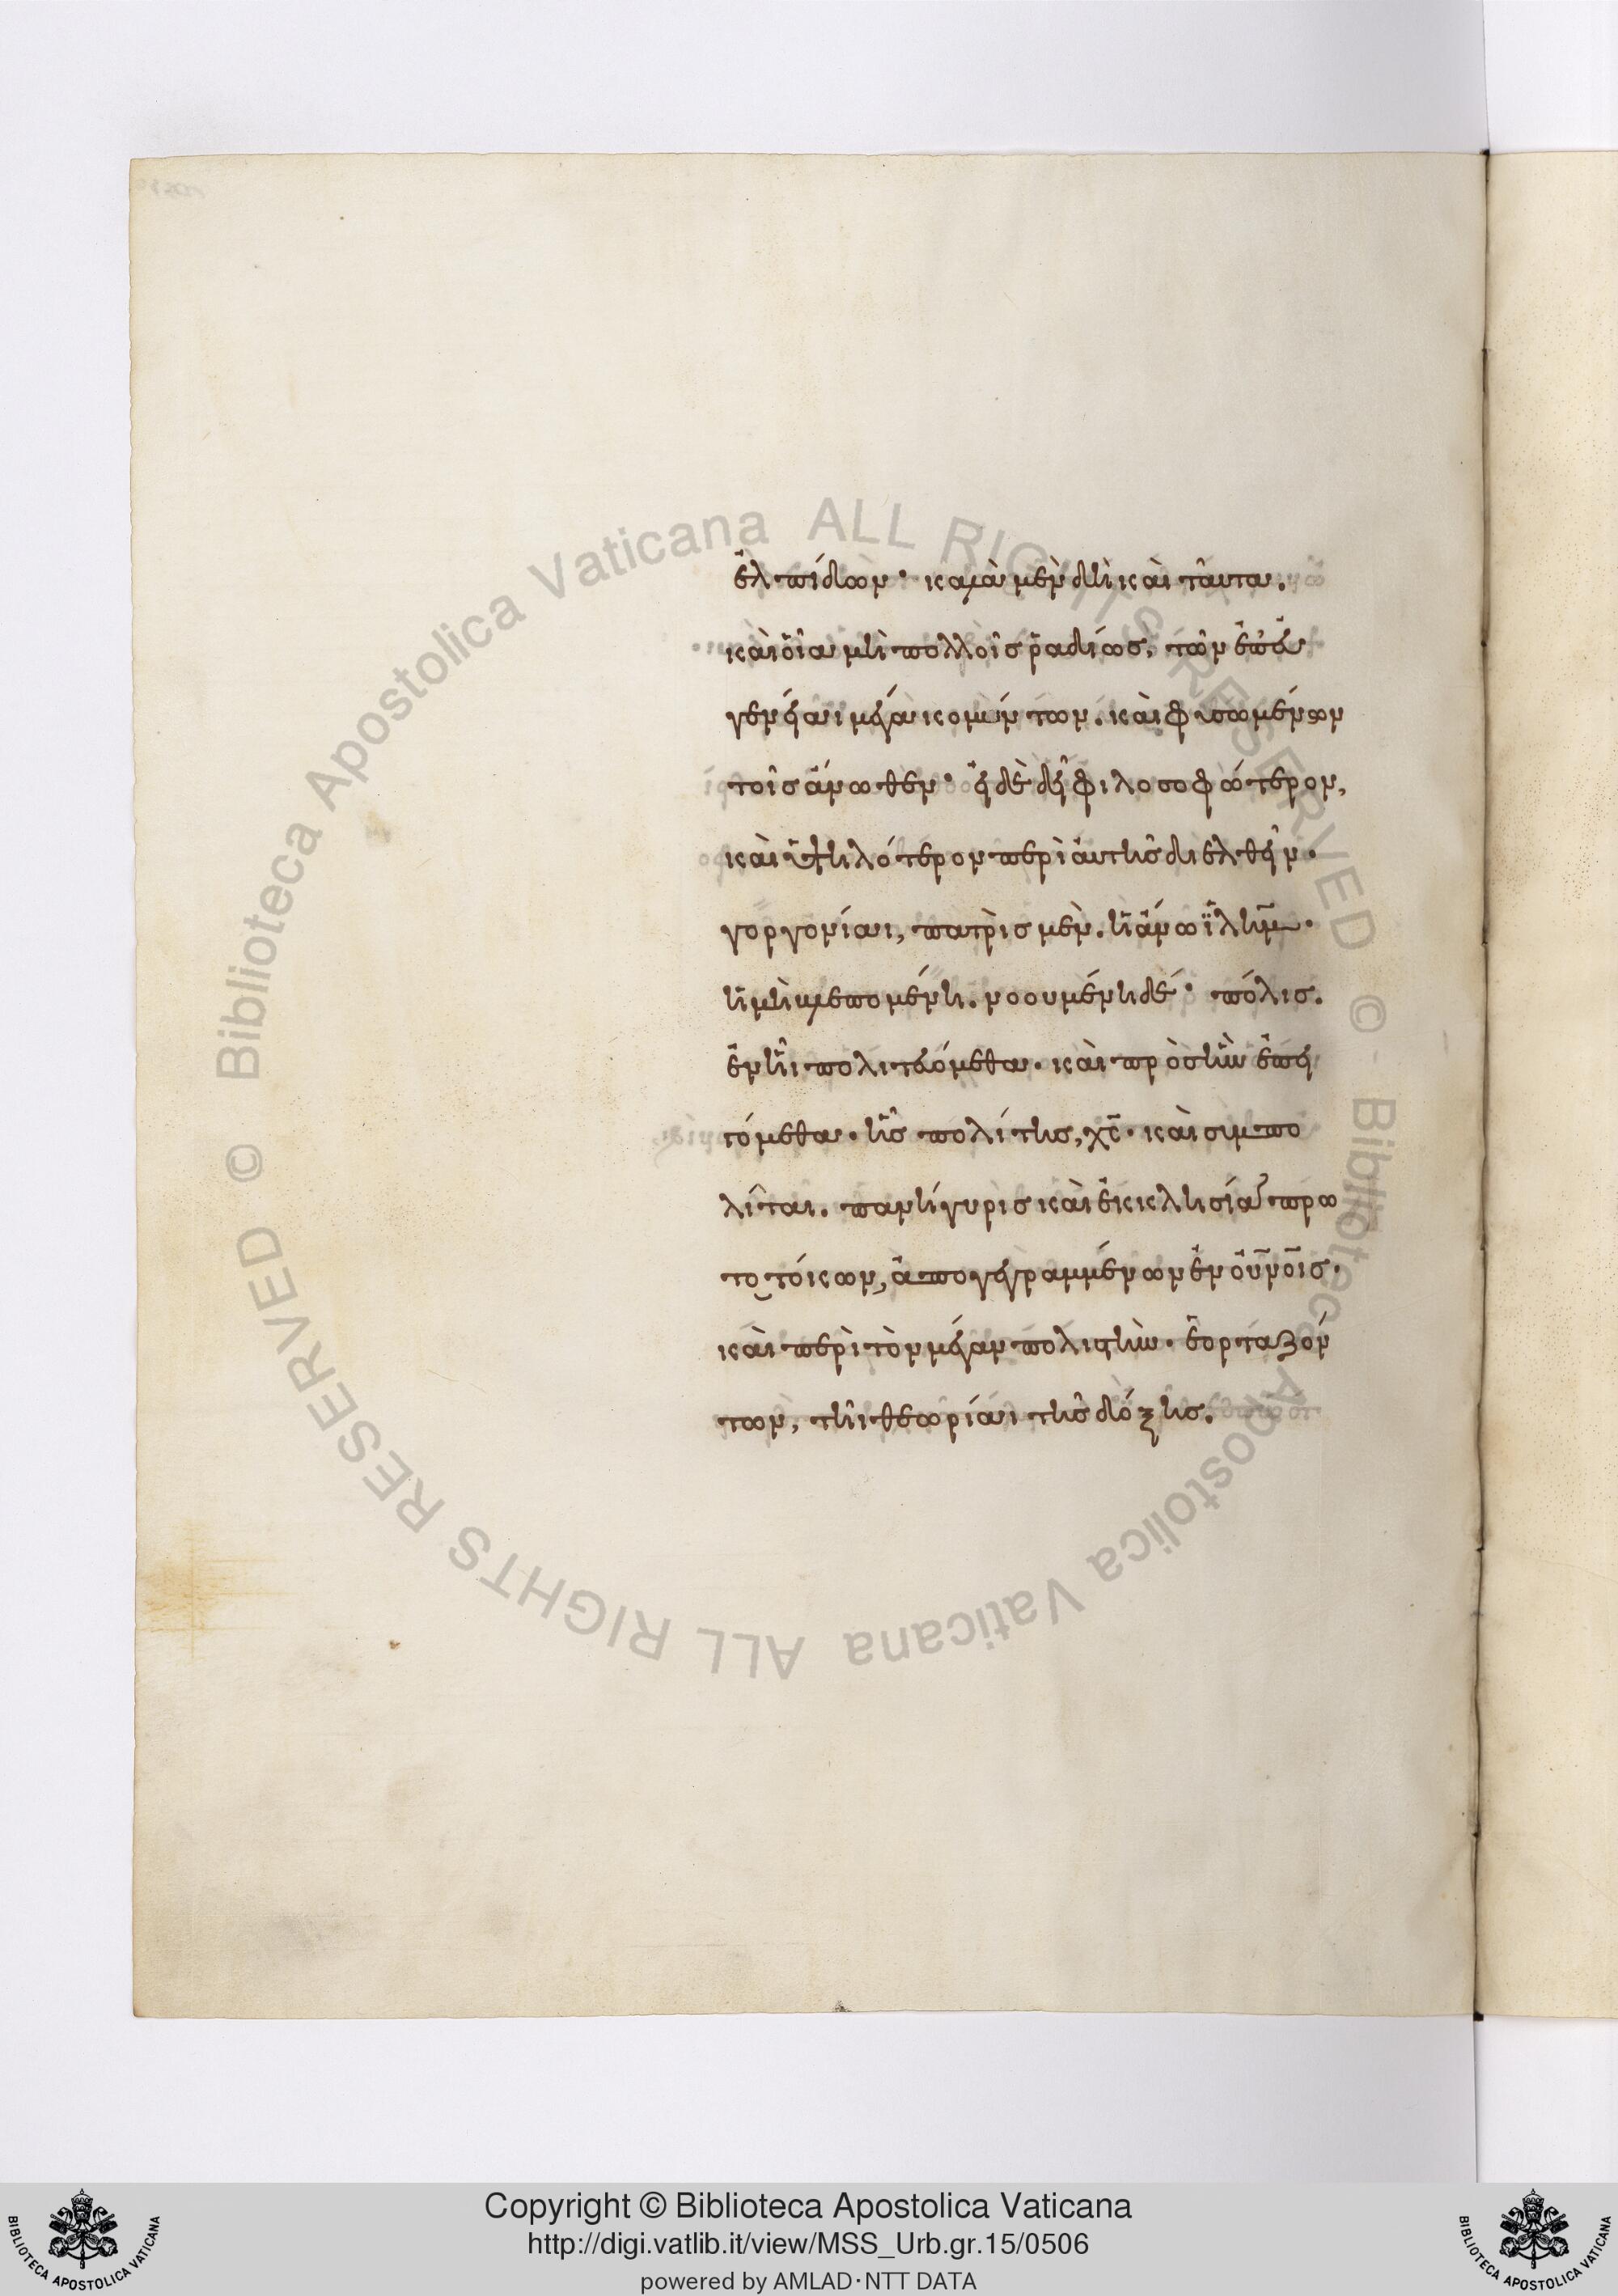 ἐλπίδων· καλὰ μὲν δὴ καὶ ταῦτα.
καὶ οἷα μὴ πολλοῖς ῥαδίως, τῶν ἐπ' εὐ
γενείαι μέγα κομώντων. καὶ φυσωμένων
τοῖς ἄνωθεν· εἰ δὲ δεῖ φιλοσοφώτερον,
καὶ ὑψηλότερον περὶ αὐτῆς διελθεῖν·
γοργονίαι, πατρὶς μὲν. ἡ ἄνω ἱλῆμ·
ἡ μὴ βλεπομένη. νοουμένη δέ· πόλις.
ἐν ἧι πολιτευόμεθα. καὶ πρὸς ἣν ἐπει
γόμεθα. ἧς πολίτης, χς̄. καὶ συμπο
λῖται. πανήγυρις καὶ ἐκκλησία πρω
τοτόκων, ἀπογεγραμμένων ἐν οὐνοῖς.
καὶ περὶ τὸν μέγαν πολιστὴν. ἑορταζόν
των, τῆι θεωρίαι τῆς δόξης.
© Biblioteca Apostolica Vaticana ALL RIGHTS RESERVED
© Biblioteca Apostolica Vaticana ALL RIGHTS RESERVED
Copyright © Biblioteca Apostolica Vaticana
http://digi.vatlib.it/view/MSS_Urb.gr.15/0506
powered by AMLAD·NTT DATA
BIBLIOTECA APOSTOLICA VATICANA
BIBLIOTECA APOSTOLICA VATICANA